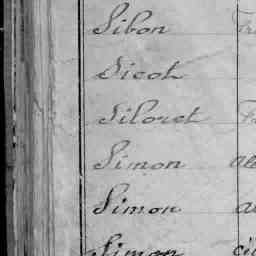 Sibon
Sicot
Siloret
Simon
Simon
Simon